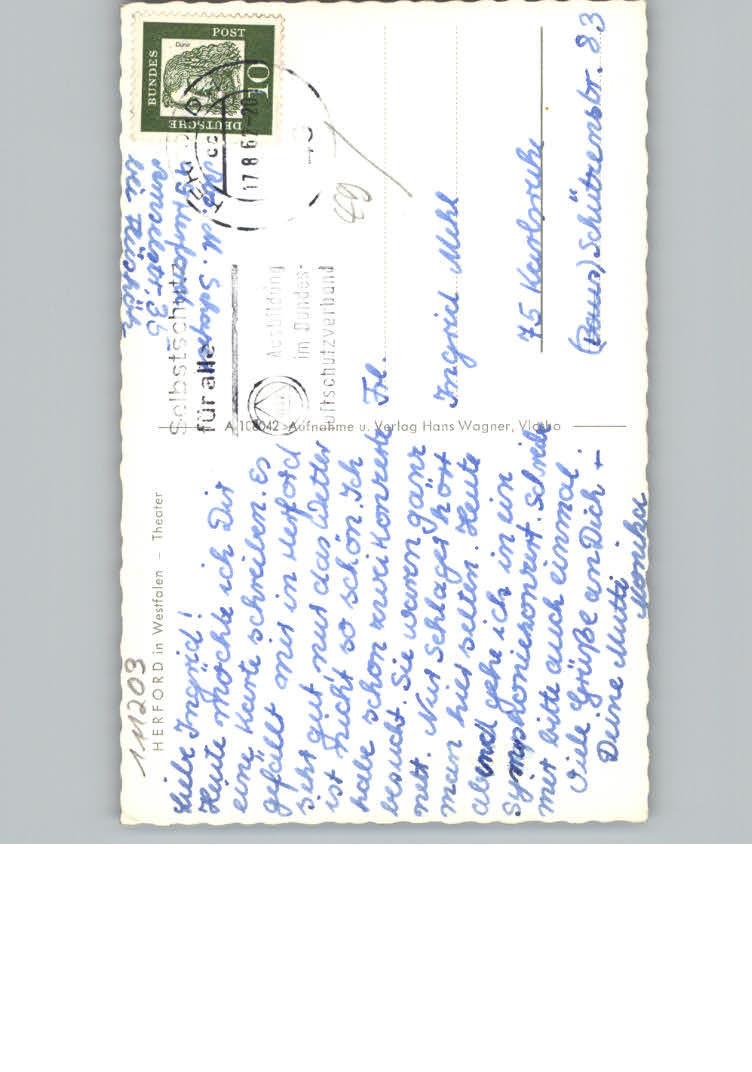 111203
HERFORD in Westfalen – Theater
Liebe Ingrid!
Heute möchte ich Dir
eine Karte schreiben. Es
gefällt mir in Herford
sehr gut, nur das Wetter
ist nicht so schön. Ich
habe schon zwei Konzerte
besucht. Sie waren ganz
nett. Nur Schlager hört
man hier selten. Heute
abend gehe ich in ein
Symphoniekonzert. Schreibe
mir bitte auch einmal.
Viele Grüße an Dich +
Deine Mutti
Monika
A 108642 Aufnahme u. Verlag Hans Wagner, Vlotho
Abs. M.
49 Herford
36
bei
Selbstschutz
für alle
Ausbildung
im Bundes-
luftschutzverband
17.8.6
DEUTSCHE
BUNDES
POST
Dürer
10
49
Frl.
Ingrid Mehl
75 Karlsruhe
Schützenstr. 83